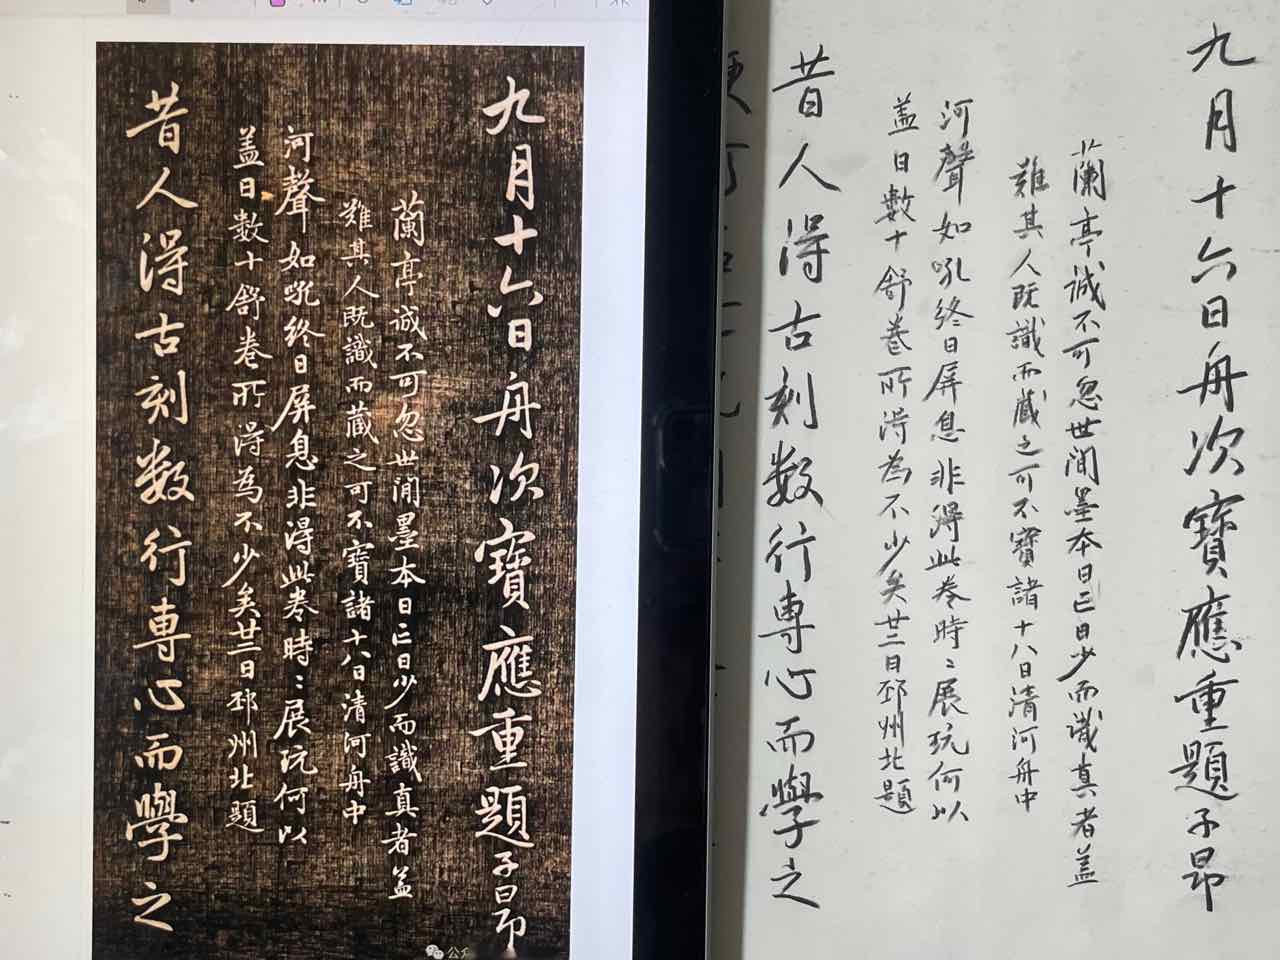 九月十六日舟次寶應重題子昂
蘭亭誠不可忽世間墨本日亡日少而識真者蓋
難其人既識而藏之可不寶諸十八日清河舟中
河聲如吼終日屏息非得此卷時〻展玩何以
蓋日數十舒卷所得為不少矣廿二日邳州北題
昔人得古刻数行専心而學之
公众
九月十六日舟次寶應重題子昂
蘭亭誠不可忽世間墨本日亡日少而識真者蓋
難其人既識而藏之可不寶諸十八日清河舟中
河聲如吼終日屏息非得此卷時〻展玩何以
蓋日數十舒卷所得為不少矣廿二日邳州北題
昔人得古刻数行専心而學之